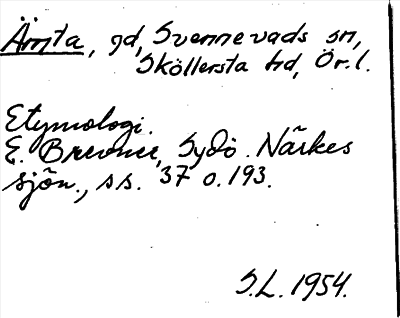 Ämta, gd, Svennevads sn,
Sköllersta hd, Ör. l.
Etymologi.
E. Brevner, Sydö. Närkes
sjön., ss. 37 o. 193.
S.L. 1954.